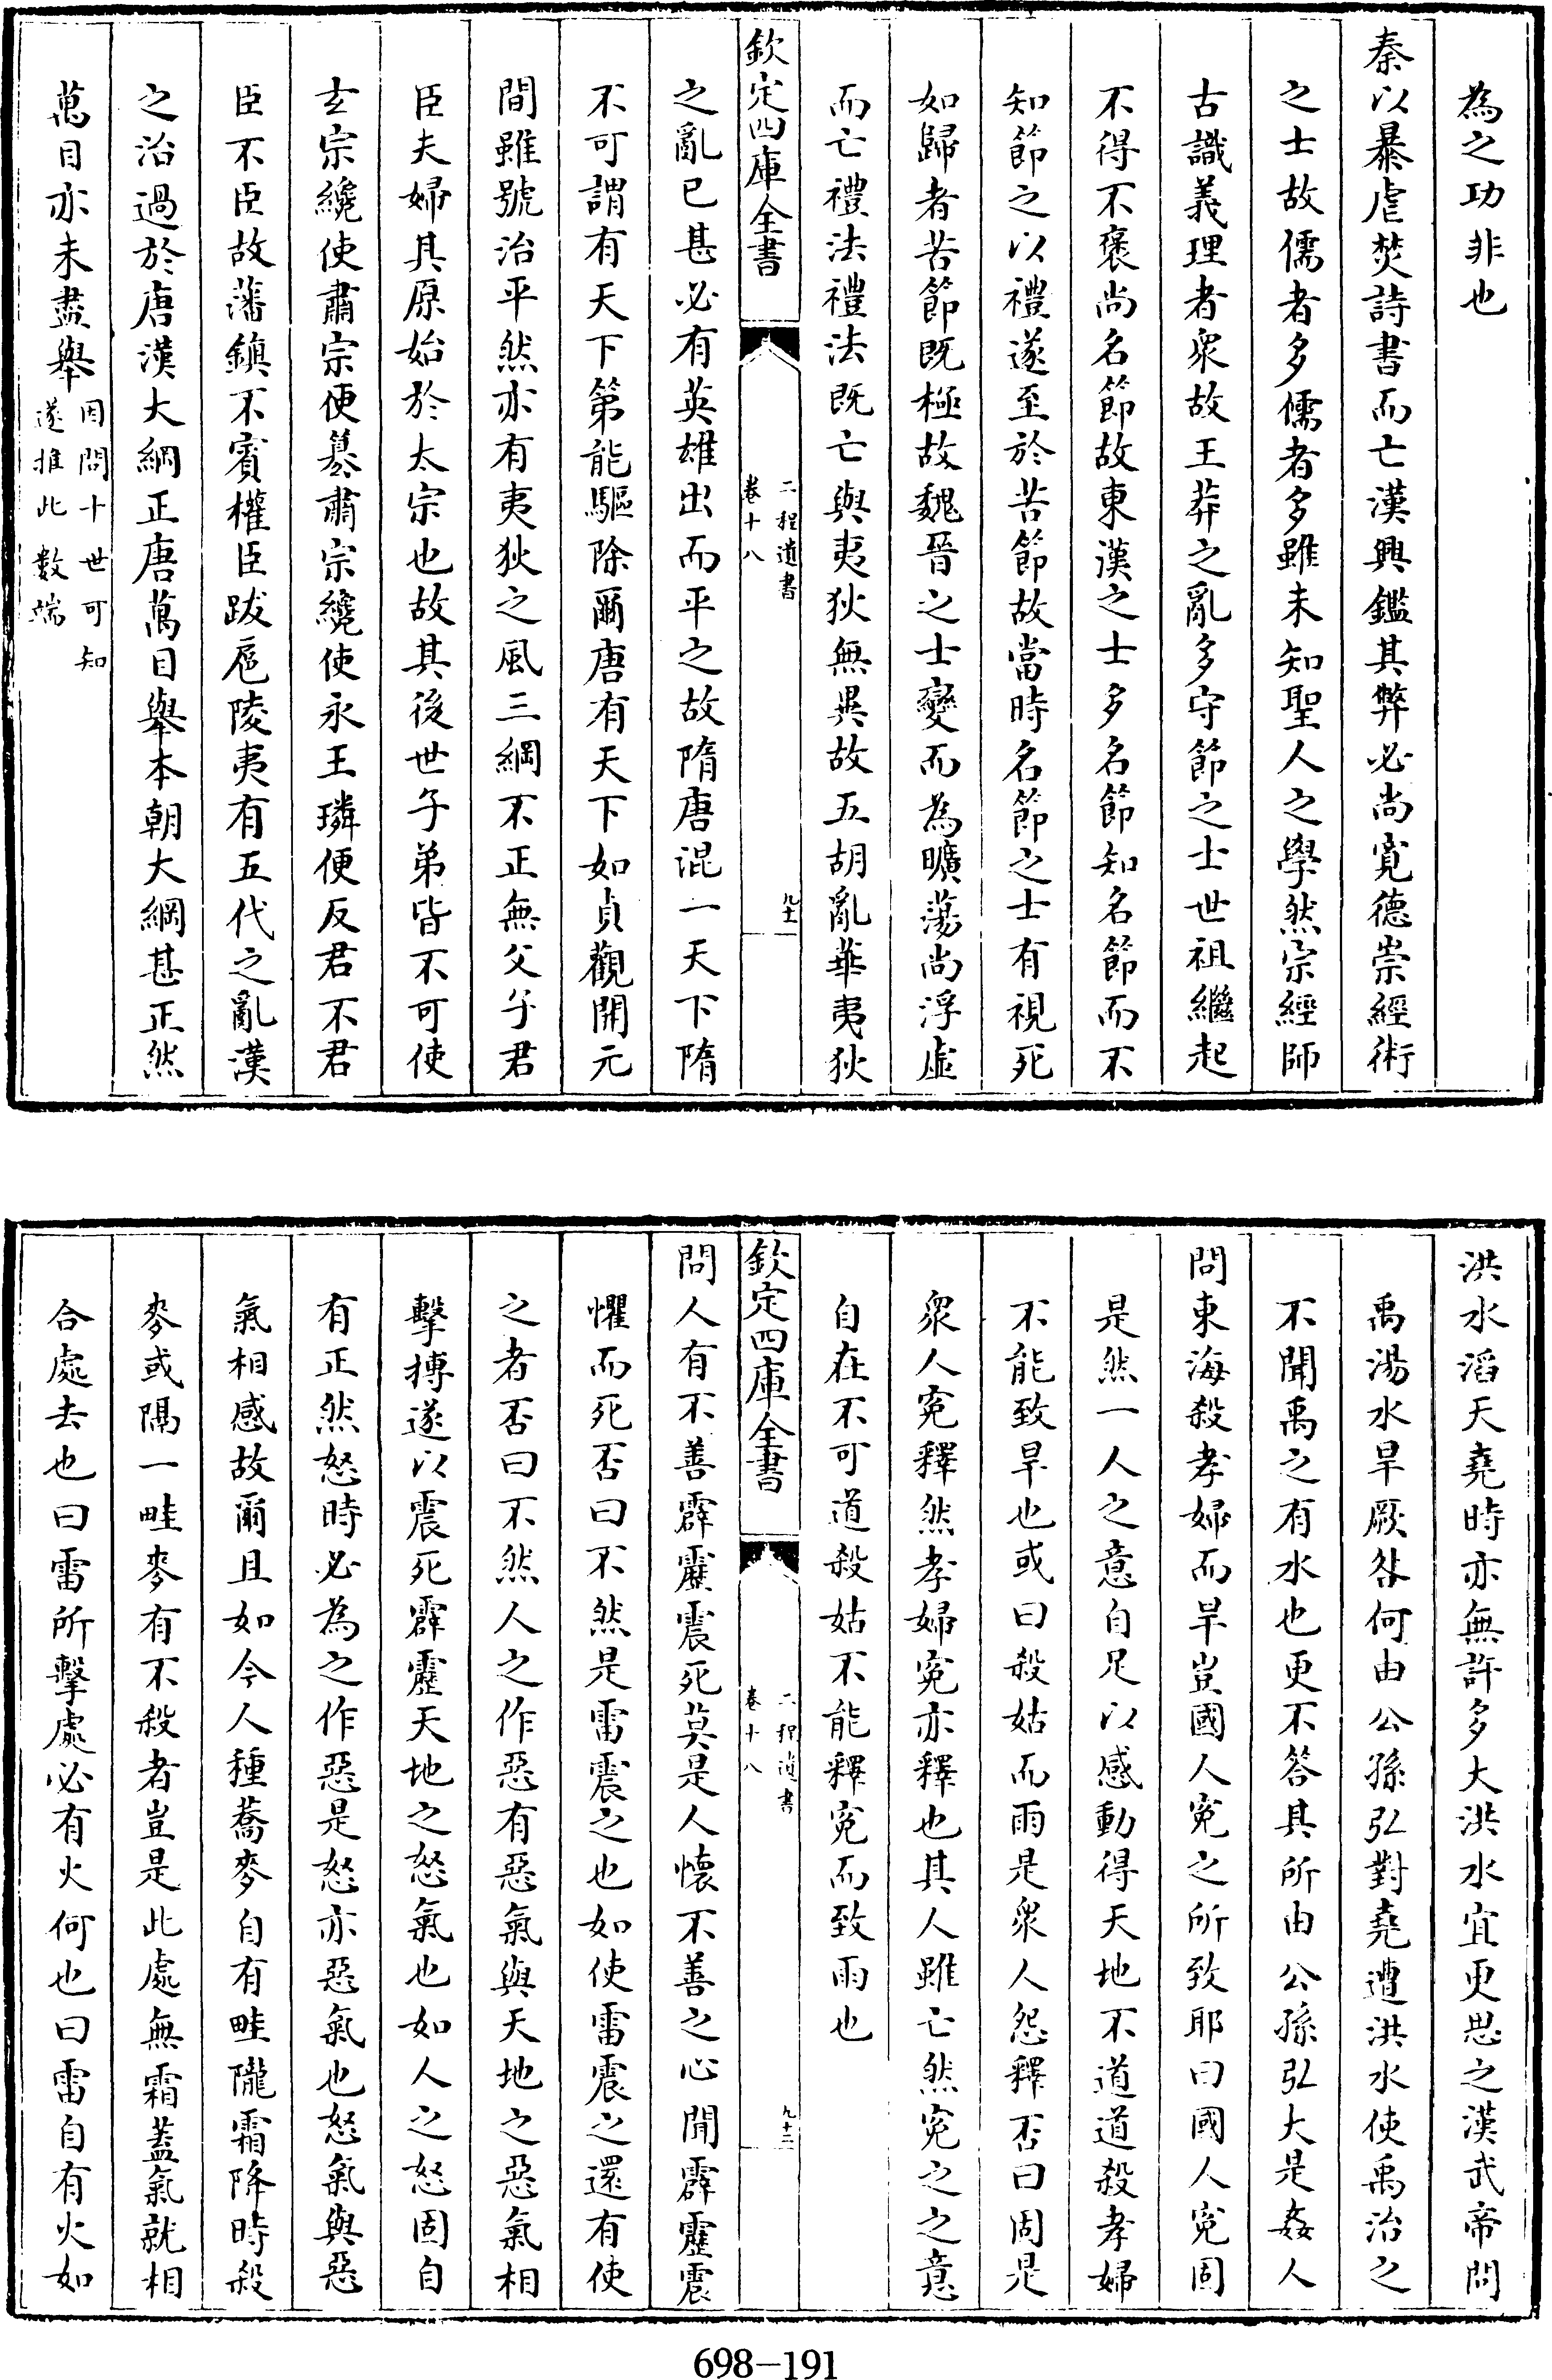 為之功非也
秦以暴虐焚詩書而亡漢興鑑其弊必尚寛德崇經術
之士故儒者多儒者多雖未知聖人之學然宗經師
古識義理者衆故王莽之亂多守節之士世祖繼起
不得不褒尚名節故東漢之士多名節知名節而不
知節之以禮遂至於苦節故當時名節之士有視死
如歸者苦節既極故魏晉之士變而為曠蕩尚浮虛
而亡禮法禮法既亡與夷狄無異故五胡亂華夷狄
欽定四庫全書
二程遺書
卷十八
九十二
之亂已甚必有英雄出而平之故隋唐混一天下隋
不可謂有天下第能驅除爾唐有天下如貞觀開元
間雖號治平然亦有夷狄之風三綱不正無父子君
臣夫婦其原始於太宗也故其後世子弟皆不可使
玄宗纔使肅宗便簒肅宗纔使永王璘便反君不君
臣不臣故藩鎮不賓權臣跋扈陵夷有五代之亂漢
之治過於唐漢大綱正唐萬目舉本朝大綱甚正然
萬目亦未盡舉因問十世可知
遂推此數端
洪水滔天堯時亦無許多大洪水宜更思之漢武帝問
禹湯水旱厥咎何由公孫弘對堯遭洪水使禹治之
不聞禹之有水也更不答其所由公孫弘大是姦人
問東海殺孝婦而旱豈國人寃之所致耶曰國人寃固
是然一人之意自足以感動得天地不道道殺孝婦
不能致旱也或曰殺姑而雨是衆人怨釋否曰固是
衆人寃釋然孝婦寃亦釋也其人雖亡然寃之之意
自在不可道殺姑不能釋寃而致雨也
欽定四庫全書
二程遺書
卷十八
九十三
問人有不善霹靂震死莫是人懷不善之心聞霹靂震
懼而死否曰不然是雷震之也如使雷震之還有使
之者否曰不然人之作惡有惡氣與天地之惡氣相
擊搏遂以震死霹靂天地之怒氣也如人之怒固自
有正然怒時必為之作惡是怒亦惡氣也怒氣與惡
氣相感故爾且如今人種蕎麥自有畦隴霜降時殺
麥或隔一畦麥有不殺者豈是此處無霜蓋氣就相
合處去也曰雷所擊處必有火何也曰雷自有火如
698-191